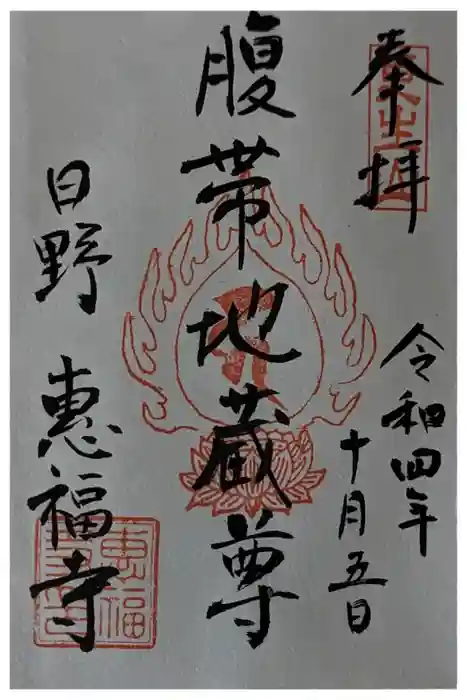 奉拝
令和四年
十月五日
腹帯地蔵尊
日野 惠福寺
惠福